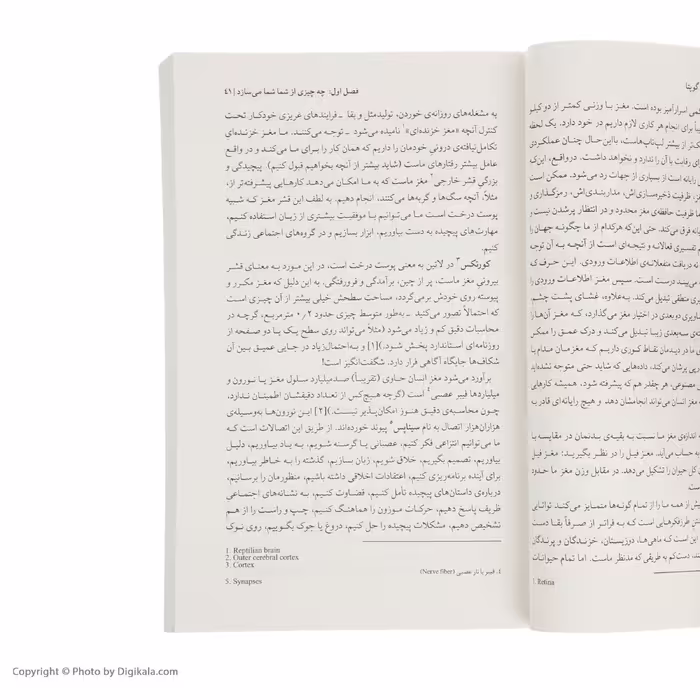 لمی اسرارآمیز بوده است. مغز با وزنی کمتر از دو کیلو
برای انجام هر کاری لازم داریم در خود دارد. یک لحظه
از بیشتر لپ‌تاپ‌هاست، بااین‌حال چنان عملکردی
رقابت با آن را ندارد و نخواهد داشت. درواقع، این‌که
رایانه است از بسیاری از جهات رد می‌شود. ممکن است
ظرفیت ذخیره‌سازی‌اش، مداربندی‌اش، رمزگذاری و
ظرفیت حافظه‌ی مغز محدود و در انتظار پرشدن نیست و
فرق می‌کند. حتی این‌که هرکدام از ما چگونه جهان را
تفسیری فعالانه و نتیجه‌ای است از آنچه به آن توجه
دریافت منفعلانه‌ی اطلاعات ورودی. این حرف که
می‌بیند درست است. سپس مغز اطلاعات ورودی را
منطقی تبدیل می‌کند. به‌علاوه، غشای پشت چشم
دوبعدی در اختیار مغز می‌گذارد، که مغز آن‌ها را
سه‌بعدی زیبا تبدیل می‌کند و درک عمق را ممکن
ما در دیدمان نقاط کوری داریم که مغزمان مدام با
پرشان می‌کند، داده‌هایی که شاید حتی متوجه نشده‌اید
مصنوعی، هر چقدر هم که پیشرفته شود، همیشه کارهایی
مغز انسان می‌تواند انجامشان دهد و هیچ رایانه‌ای قادر به
اندازه‌ی مغز ما نسبت به بقیه‌ی بدنمان در مقایسه با
به حساب می‌آید. مغز فیل را در نظر بگیرید: مغز فیل
کل حیوان را تشکیل می‌دهد. در مقابل وزن مغز ما حدود
است
از همه ما را از تمام گونه‌ها متمایز می‌کند توانایی
طرزفکرهایی است که به فراتر از صرفاً بقا دست
این است که ماهی‌ها، دوزیستان، خزندگان و پرندگان
دست‌کم به طریقی که مدنظر ماست. اما تمام حیوانات
1. Retina
فصل اول: چه چیزی از شما شما می‌سازد | ۴۱
به مشغله‌های روزانه‌ی خوردن، تولیدمثل و بقا ـ فرایندهای غریزی خودکار تحت
کنترل آنچه «مغز خزنده‌ای»۱ نامیده می‌شود ـ توجه می‌کنند. ما مغز خزنده‌ای
تکامل‌نیافته‌ی درونی خودمان را داریم که همان کار را برای ما می‌کند و در واقع
عامل بیشتر رفتارهای ماست (شاید بیشتر از آنچه بخواهیم قبول کنیم). پیچیدگی و
بزرگیِ قشر خارجی۲ مغز ماست که به ما امکان می‌دهد کارهایی پیشرفته‌تر از،
مثلاً، آنچه سگ‌ها و گربه‌ها می‌کنند، انجام دهیم. به لطف این قشر مغز که شبیه
پوست درخت است ما می‌توانیم با موفقیت بیشتری از زبان استفاده کنیم،
مهارت‌های پیچیده به دست بیاوریم، ابزار بسازیم و در گروه‌های اجتماعی زندگی
کنیم.
کورتکس۳ در لاتین به معنی پوست درخت است، در این مورد به معنای قشر
بیرونی مغز ماست، پر از چین، برآمدگی و فرورفتگی. به این دلیل که مغز مکرر و
پیوسته روی خودش برمی‌گردد، مساحت سطحش خیلی بیشتر از آن چیزی است
که احتمالاً تصور می‌کنید ـ به‌طور متوسط چیزی حدود ۰/۲ مترمربع، گرچه در
محاسبات دقیق کم و زیاد می‌شود (مثلاً می‌تواند روی سطح یک یا دو صفحه از
روزنامه‌ای استاندارد پخش شود.)[۱] و به‌احتمال‌زیاد در جایی عمیق بین آن
شکاف‌ها جایگاه آگاهی قرار دارد. شگفت‌انگیز است!
برآورد می‌شود مغز انسان حاوی (تقریباً) صدمیلیارد سلول مغز یا نورون و
میلیاردها فیبر عصبی۴ است (گرچه هیچ‌کس از تعداد دقیقشان اطمینان ندارد،
چون محاسبه‌ی دقیق هنوز امکان‌پذیر نیست.)[۲] این نورون‌ها به‌وسیله‌ی
هزاران‌هزار اتصال به نام سیناپس۵ پیوند خورده‌اند. از طریق این اتصالات است که
ما می‌توانیم انتزاعی فکر کنیم، عصبانی یا گرسنه شویم، به یاد بیاوریم، دلیل
بیاوریم، تصمیم بگیریم، خلاق شویم، زبان بسازیم، گذشته را به خاطر بیاوریم،
برای آینده برنامه‌ریزی کنیم، اعتقادات اخلاقی داشته باشیم، منظورمان را برسانیم،
درباره‌ی داستان‌های پیچیده تأمل کنیم، قضاوت کنیم، به نشانه‌های اجتماعی
ظریف پاسخ دهیم، حرکات موزون را هماهنگ کنیم، چپ و راست را از هم
تشخیص دهیم، مشکلات پیچیده را حل کنیم، دروغ یا جوک بگوییم، روی نوک
1. Reptilian brain
2. Outer cerebral cortex
3. Cortex
۴. فیبر یا تار عصبی (Nerve fiber)
5. Synapses
Copyright © Photo by Digikala.com